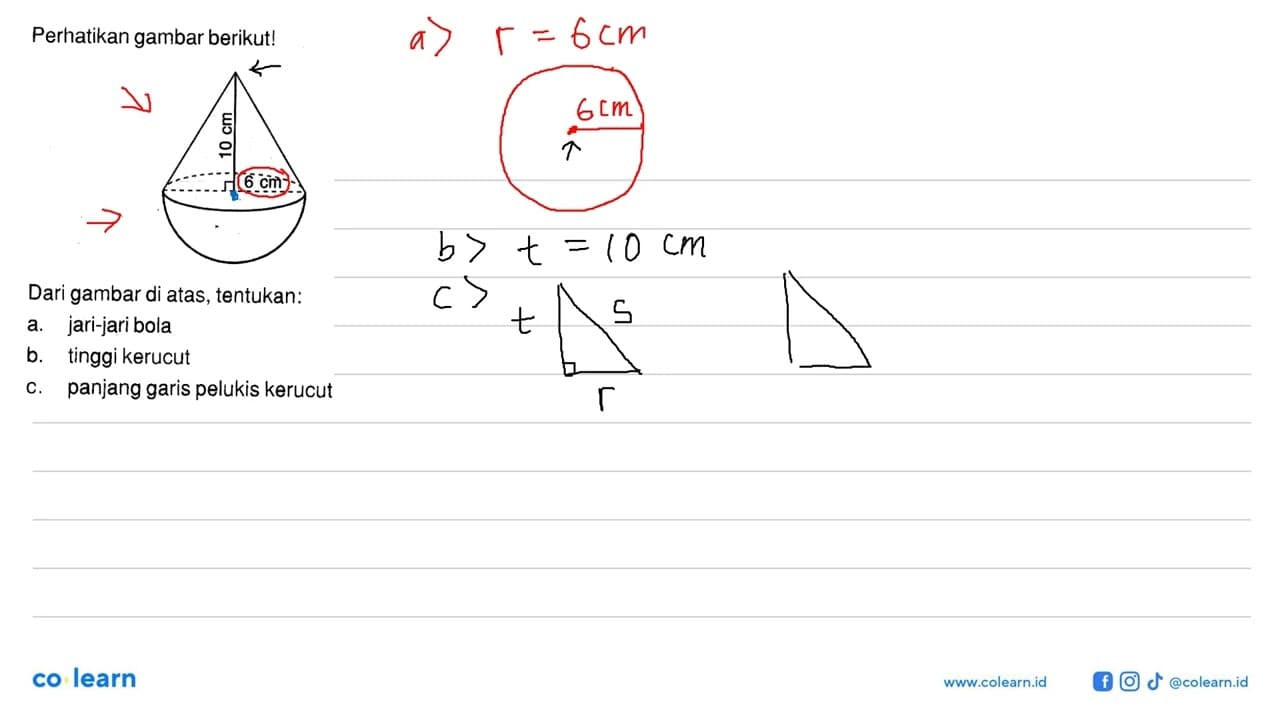 Perhatikan gambar berikut!
10 cm
6 cm
Dari gambar di atas, tentukan:
a. jari-jari bola
b. tinggi kerucut
c. panjang garis pelukis kerucut
a> r = 6 cm
6 cm
b> t = 10 cm
c>
t
s
r
co learn
www.colearn.id
@colearn.id